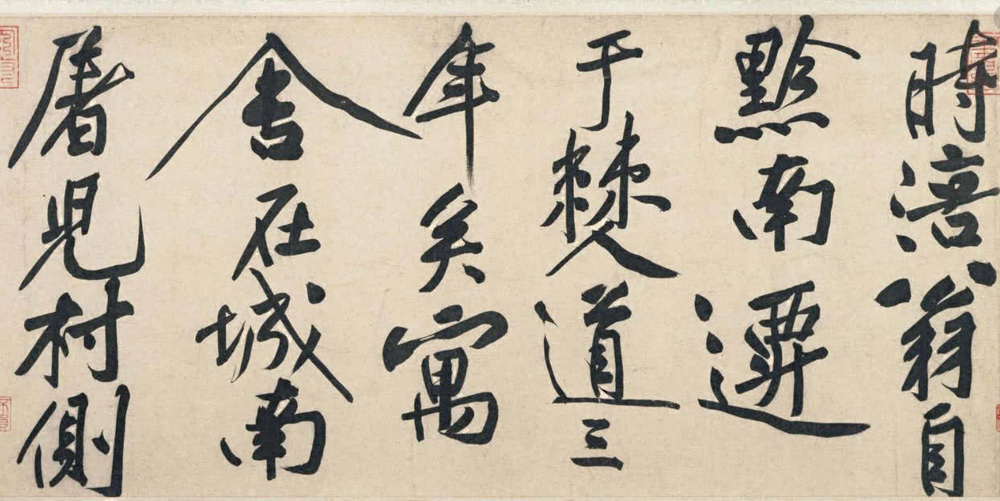 時涪翁自
黔南遷
于僰道三
年矣寓
舍在城南
屠兒村側